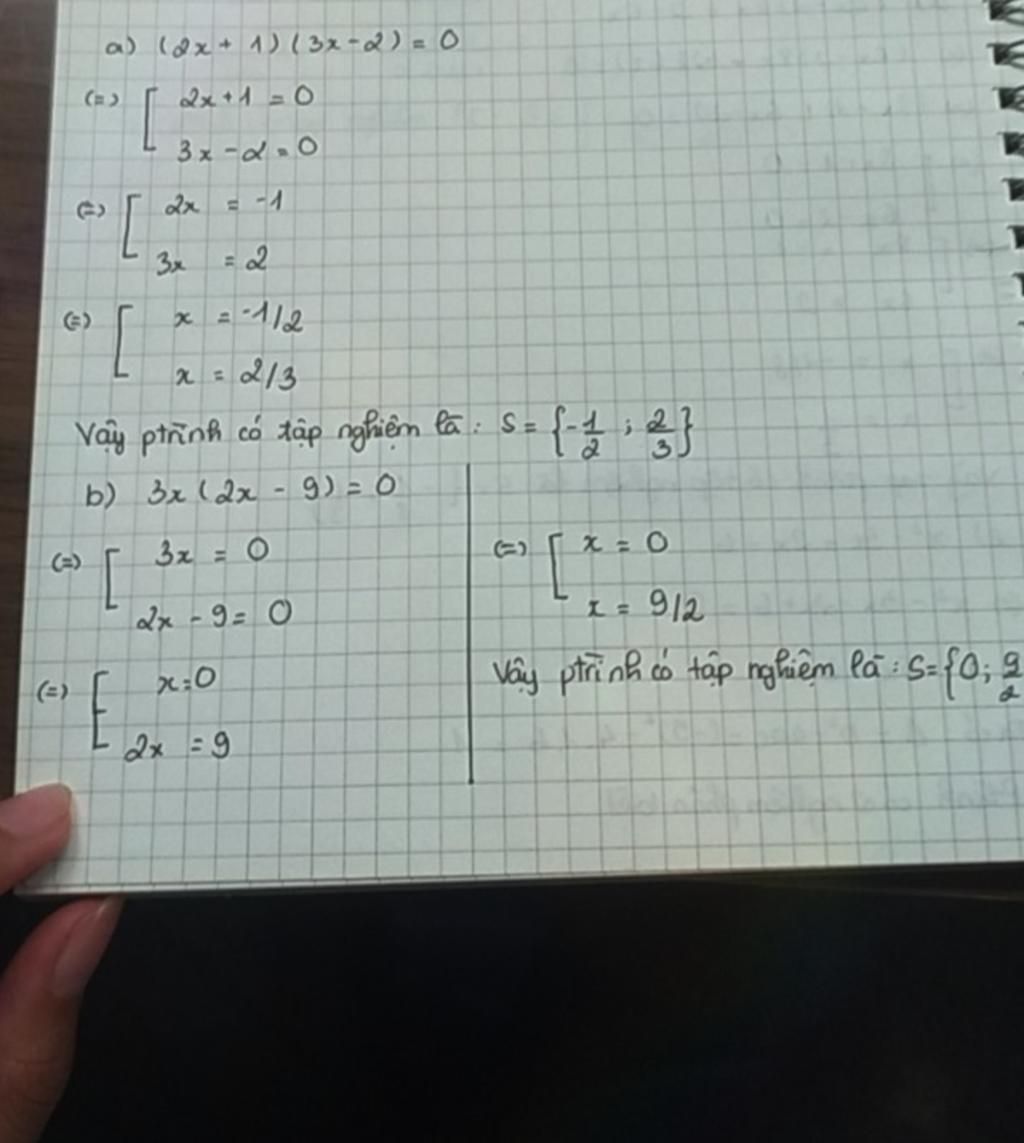 a) (2x + 1) (3x - 2) = 0
(=) [ 2x + 1 = 0
3x - 2 = 0
(=) [ 2x = -1
3x = 2
(=) [ x = -1/2
x = 2/3
Vậy ptrình có tập nghiệm là : S = { -1/2 ; 2/3 }
b) 3x (2x - 9) = 0
(=) [ 3x = 0
2x - 9 = 0
(=) [ x = 0
2x = 9
(=) [ x = 0
x = 9/2
Vậy ptrình có tập nghiệm là : S = { 0 ; 9/2